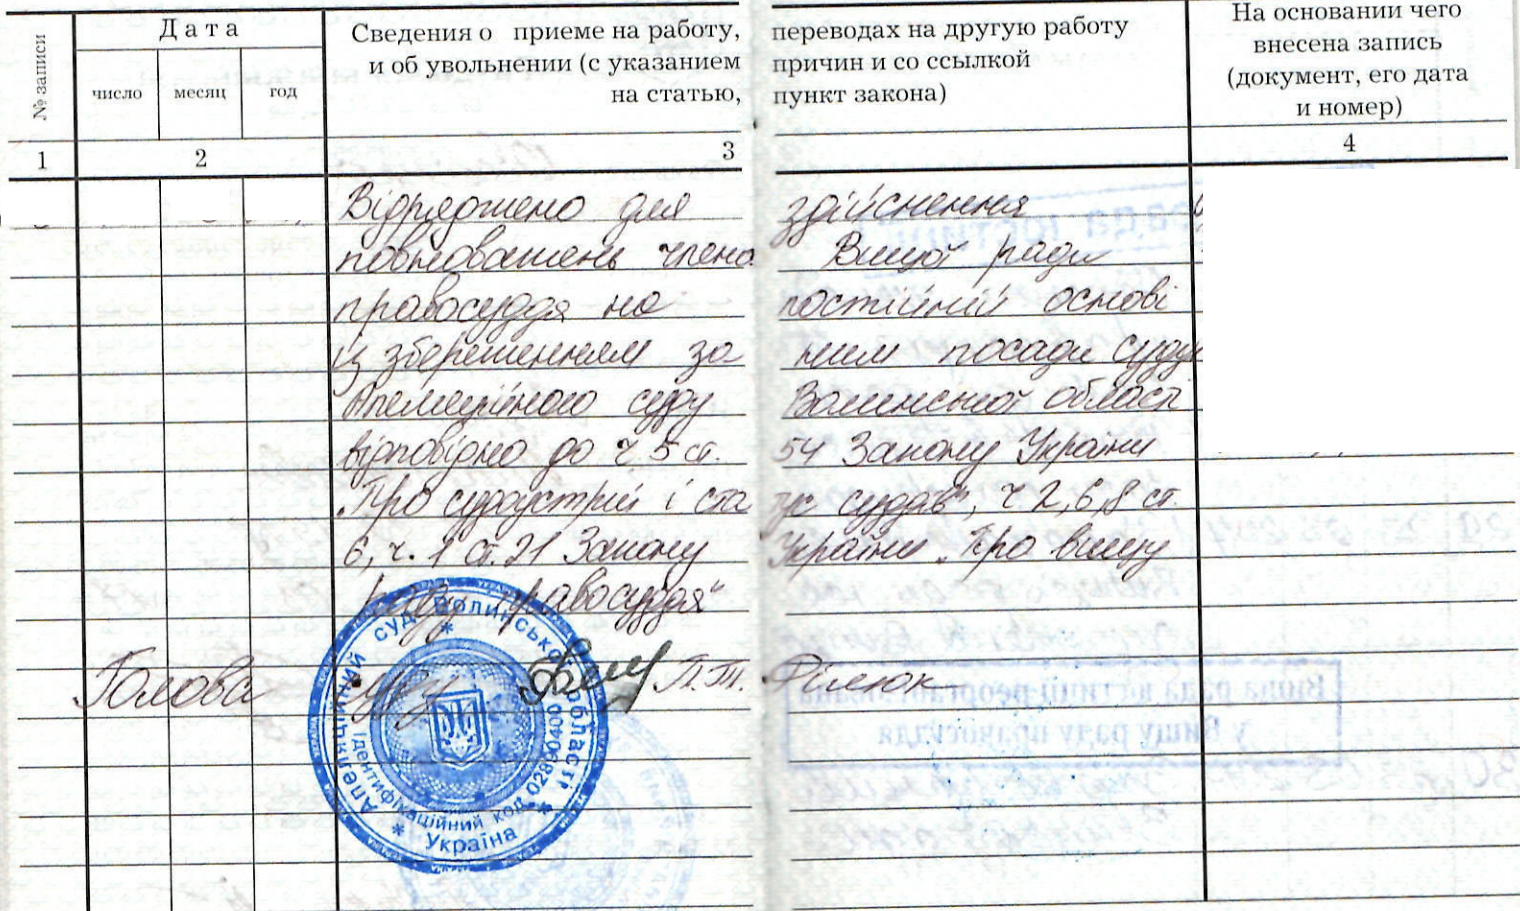 № записи
Дата
число месяц год
Сведения о приеме на работу, переводах на другую работу
и об увольнении (с указанием причин и со ссылкой
на статью, пункт закона)
На основании чего
внесена запись
(документ, его дата
и номер)
1 2 3 4
Відряджено для здійснення
повноважень члена Вищої ради
правосуддя на постійній основі
із збереженням за ним посади судді
Апеляційного суду Волинської області
відповідно до ч. 5 ст. 54 Закону України
„Про судоустрій і статус суддів", ч 2, 6, 8 ст.
6, ч. 1 ст. 21 Закону України „Про Вищу
раду правосуддя"
Голова суду П.Т. Філюк
Апеляційний суд Волинської області
Ідентифікаційний код 02890400
* Україна *
Вища рада юстиції реорганізована
у Вищу раду правосуддя